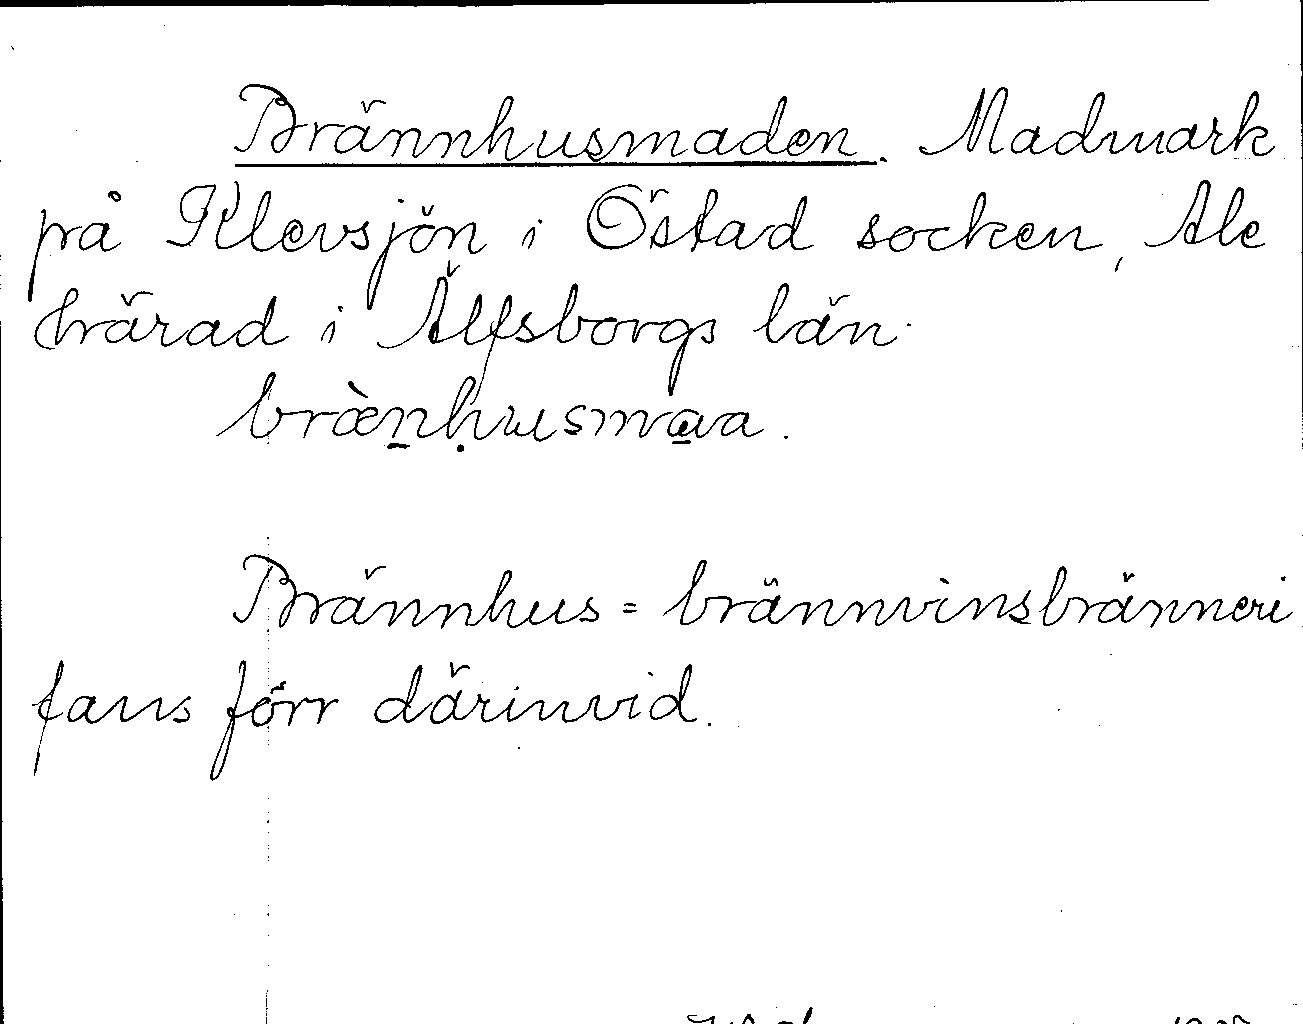 Brännhusmaden. Madmark
på Klevsjön i Östad socken, Ale
härad i Älfsborgs län.
bræ̀n̲ḥusma̲a.

Brännhus = brännvinsbränneri
fans förr därinvid.